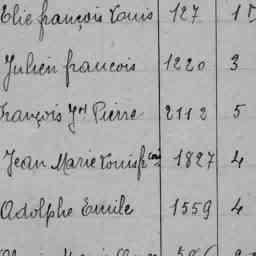 Elie françois Louis 127 1
Julien francois 1220 3
François Yves Pierre 2112 5
Jean Marie Louis fcois 1827 4
Adolphe Emile 1559 4